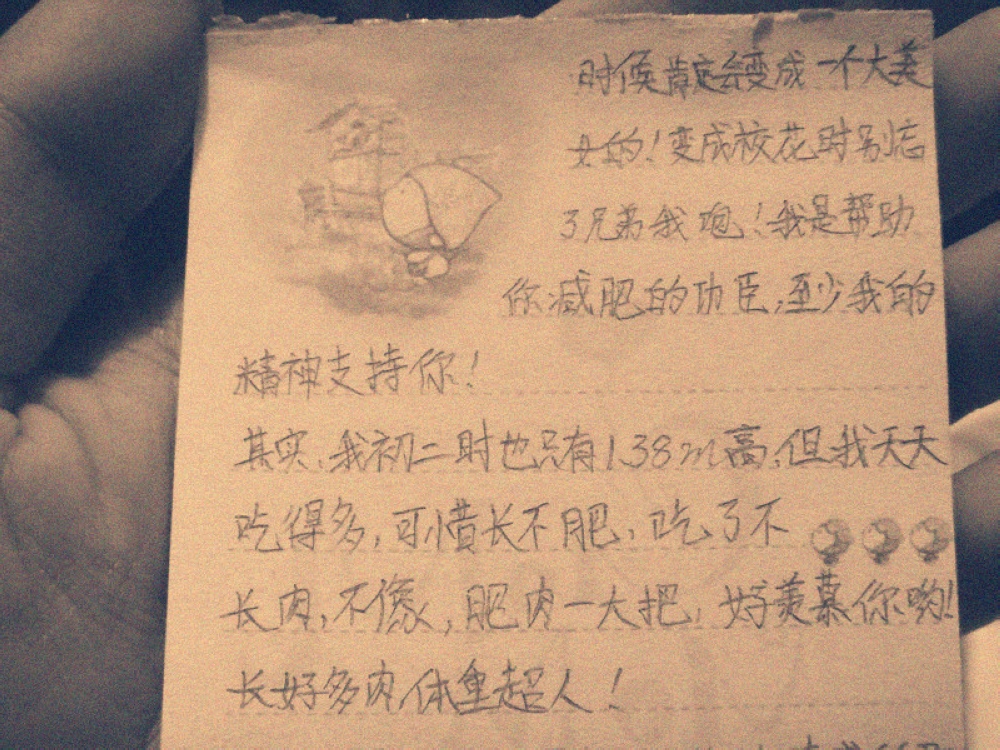 时候肯定会变成一个大美
女的！变成校花时别忘
了兄弟我咆！我是帮助
你减肥的功臣，至少我的
精神支持你！
其实，我初二时也只有1.38m高，但我天天
吃得多，可惜长不肥，吃了不
长肉，不像，肥肉一大把，好羡慕你哟！
长好多肉，体重超人！